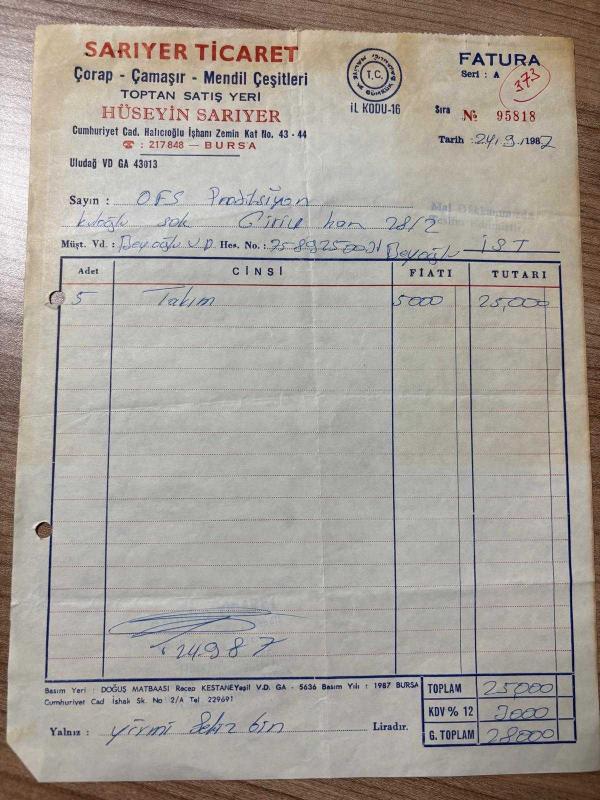 SARIYER TİCARET
Çorap - Çamaşır - Mendil Çeşitleri
TOPTAN SATIŞ YERİ
HÜSEYİN SARIYER
Cumhuriyet Cad. Halıcıoğlu İşhanı Zemin Kat No. 43 - 44
☎ : 217848 — BURSA
Uludağ VD GA 43013
T.C.
İL KODU-16
FATURA
Seri : A
373
Sıra № 95818
Tarih : 24/9/1987
Sayın : OFS Prodüksiyon
sok han 28/2
Müşt. Vd. : Beyoğlu V.D. Hes. No. : Beyoğlu - İST
Adet CİNSİ FİATI TUTARI
5 Takım 5000 25,000
24.9.87
Basım Yeri : DOĞUŞ MATBAASI Recep KESTANE Yeşil V.D. GA - 5636 Basım Yılı : 1987 BURSA
Cumhuriyet Cad İshak Sk. No : 2/A Tel 229691
TOPLAM 25000
KDV % 12 3000
G. TOPLAM 28000
Yalnız : yirmi sekiz bin Liradır.